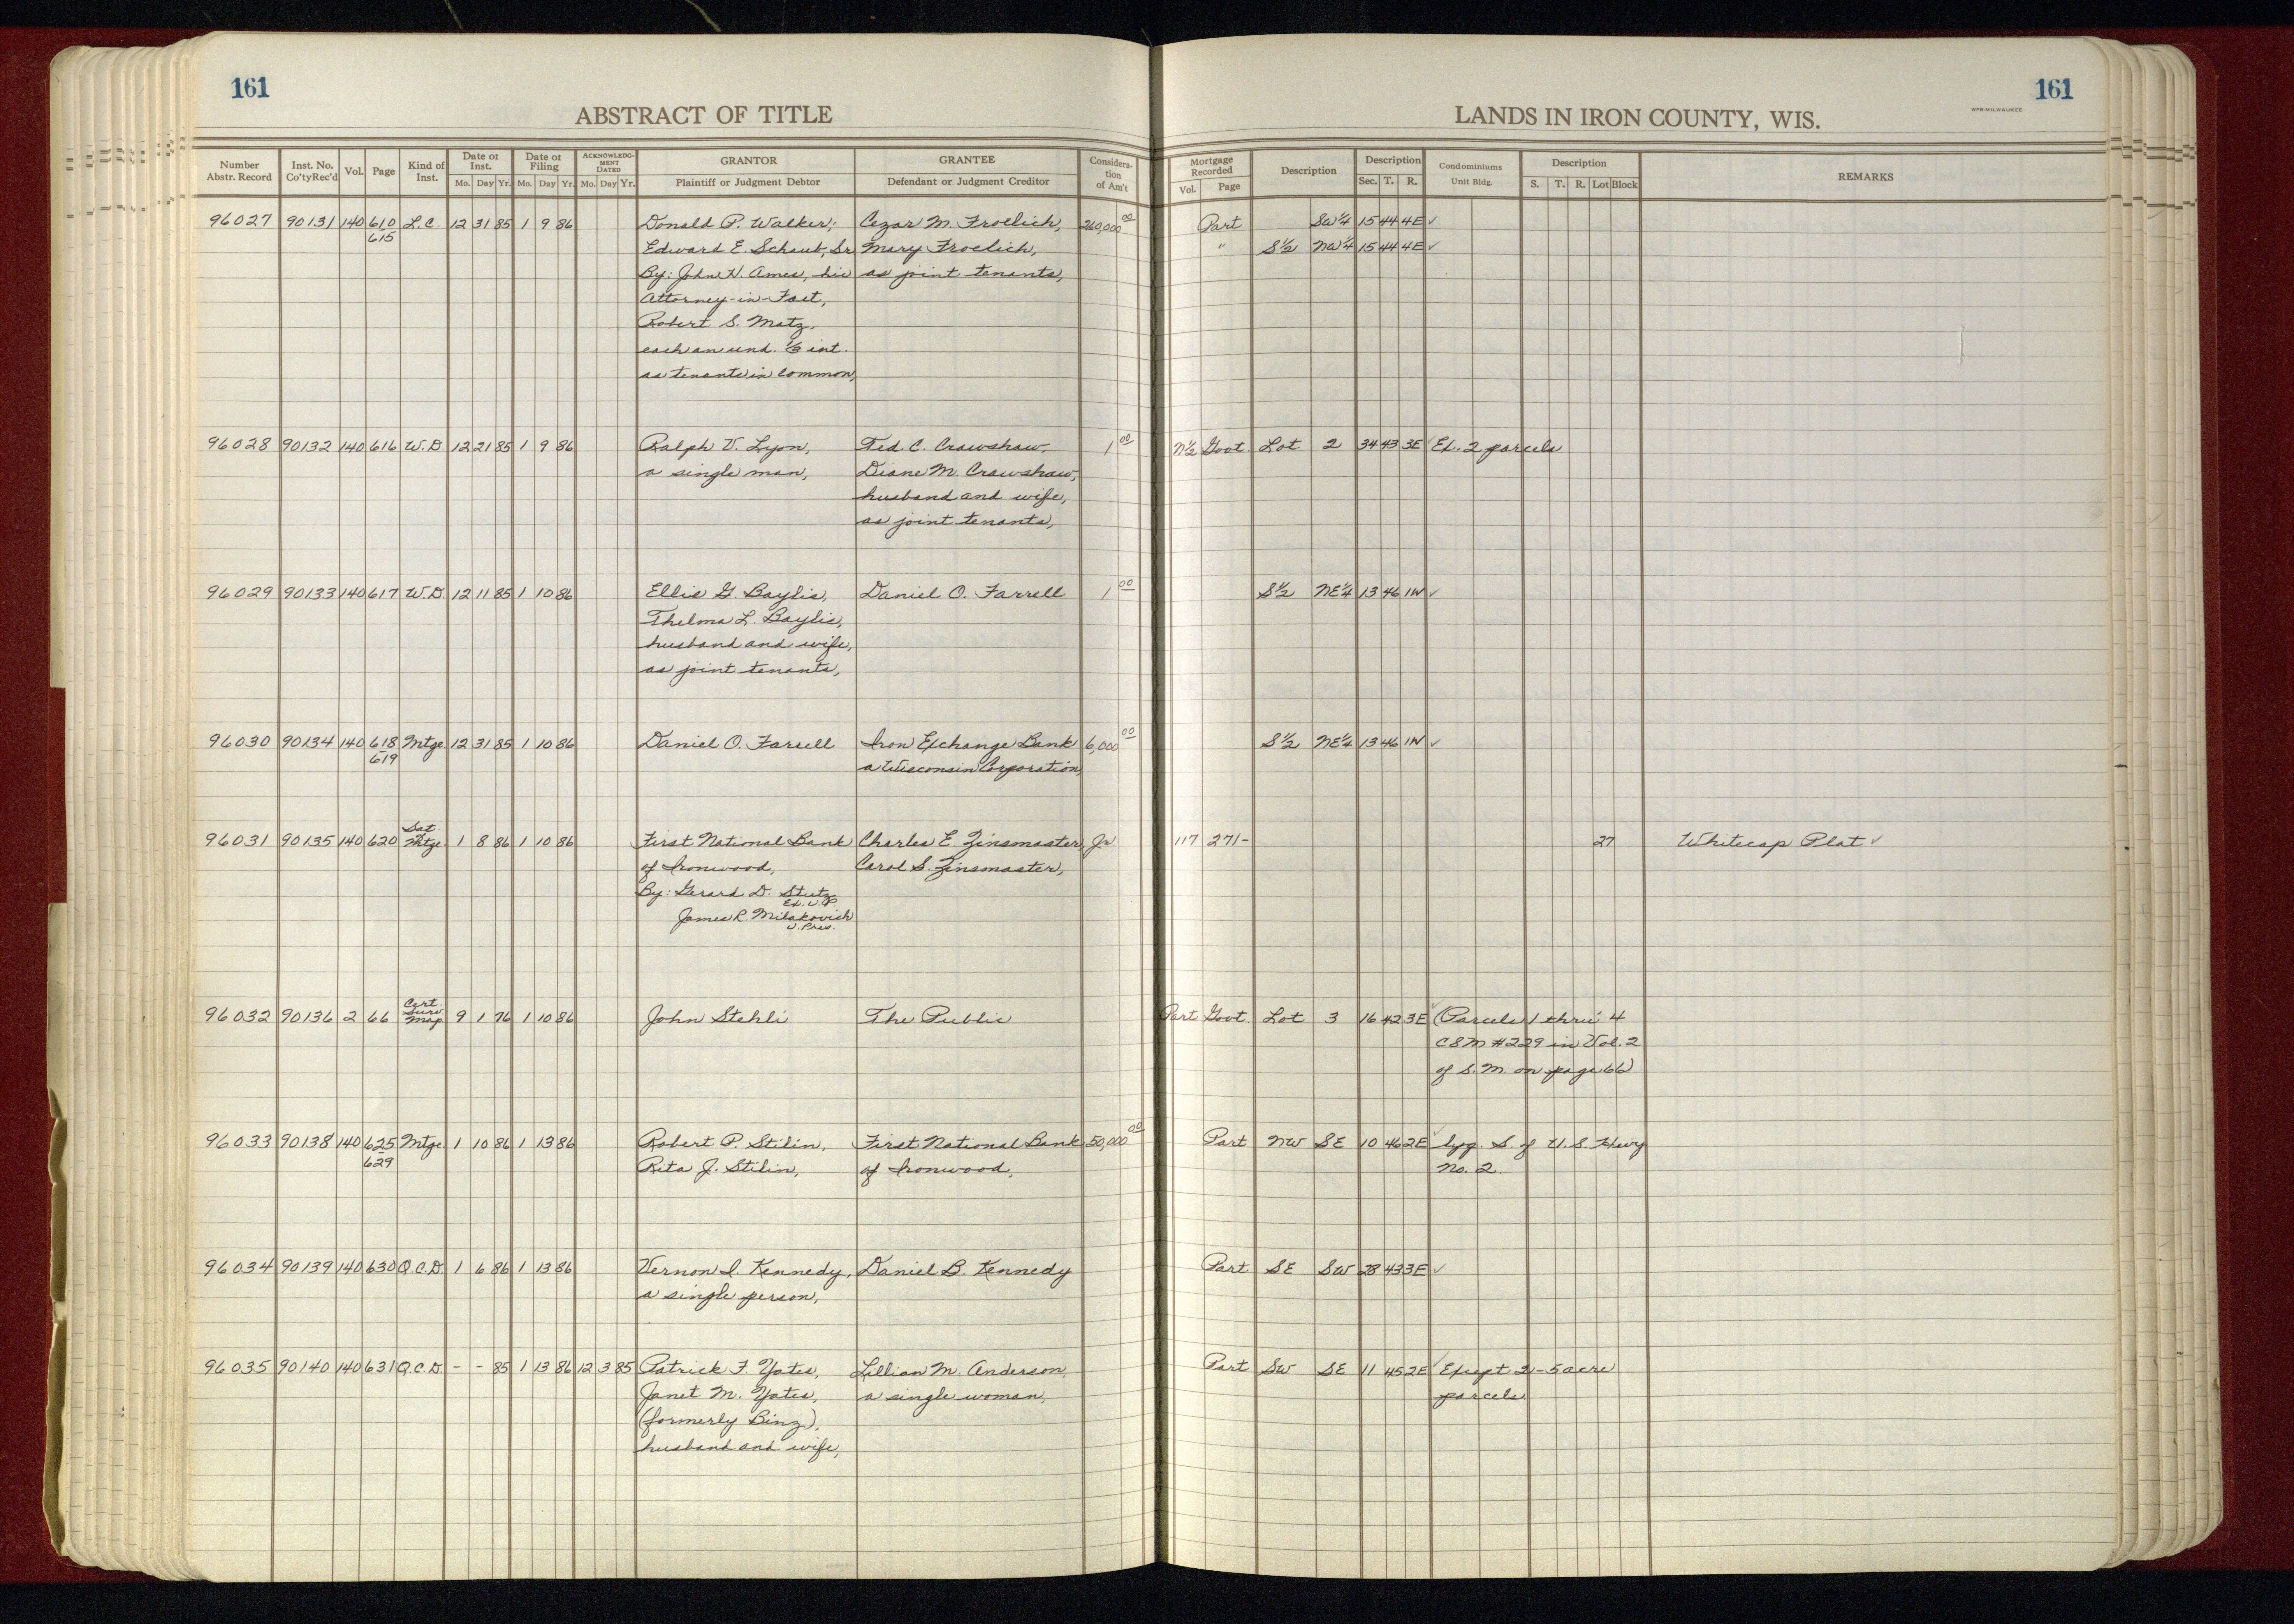 161
161
ABSTRACT OF TITLE
LANDS IN IRON COUNTY, WIS.
WPB-MILWAUKEE
Number Abstr. Record | Inst. No. Co'ty Rec'd | Vol. | Page | Kind of Inst. | Date of Inst. Mo. Day Yr. | Date of Filing Mo. Day Yr. | ACKNOWLEDG-MENT DATED Mo. Day Yr. | GRANTOR Plaintiff or Judgment Debtor | GRANTEE Defendant or Judgment Creditor | Considera-tion of Am't | Mortgage Recorded Vol. Page | Description | Description Sec. T. R. | Condominiums Unit Bldg. | Description S. T. R. Lot Block | REMARKS
96027 90131 140 610 L.C. 12 31 85 1 9 86 Donald P. Walker, Cezar M. Froelich, 260,000 00 Part SW¼ 15 44 4E ✓
615 Edward E. Schaub, Sr. Mary Froelich, " S½ NW¼ 15 44 4E ✓
By: John H. Ames, his as joint tenants,
Attorney-in-Fact,
Robert S. Matz,
each an und. ⅓ int.
as tenants in common,
96028 90132 140 616 W.D. 12 21 85 1 9 86 Ralph V. Lyon, Ted. C. Crawshaw, 1 00 N½ Govt. Lot 2 34 43 3E ✓ Ex. 2 parcels
a single man, Diane M. Crawshaw,
husband and wife,
as joint tenants,
96029 90133 140 617 W.D. 12 11 85 1 10 86 Ellis G. Baylis, Daniel O. Farrell 1 00 S½ NE¼ 13 46 1W ✓
Thelma L. Baylis,
husband and wife,
as joint tenants,
96030 90134 140 618 Mtge. 12 31 85 1 10 86 Daniel O. Farrell Iron Exchange Bank 6,000 00 S½ NE¼ 13 46 1W ✓
619 a Wisconsin Corporation,
96031 90135 140 620 Sat. Mtge. 1 8 86 1 10 86 First National Bank Charles E. Zinsmaster, Jr. 117 271- 27 Whitecap Plat ✓
of Ironwood, Carol S. Zinsmaster,
By: Gerard D. Stutz
Ex. V.P.
James R. Milakovich
V. Pres.
96032 90136 2 66 Cert. Surv. Map 9 1 76 1 10 86 John Stehli The Public Part Govt. Lot 3 16 42 3E ✓ (Parcels 1 thru 4
CSM #229 in Vol. 2
of S.M. on page 66)
96033 90138 140 625 Mtge. 1 10 86 1 13 86 Robert P. Stilin, First National Bank 50,000 00 Part NW SE 10 46 2E ✓ lyg. S. of U.S. Hwy
629 Rita J. Stilin, of Ironwood, No. 2.
96034 90139 140 630 Q.C.D. 1 6 86 1 13 86 Vernon I. Kennedy, Daniel B. Kennedy Part SE SW 28 43 3E ✓
a single person,
96035 90140 140 631 Q.C.D. - - 85 1 13 86 12 3 85 Patrick F. Yates, Lillian M. Anderson, Part SW SE 11 45 2E ✓ Except 2-5 acre
Janet M. Yates, a single woman, parcels.
(formerly Binz),
husband and wife,